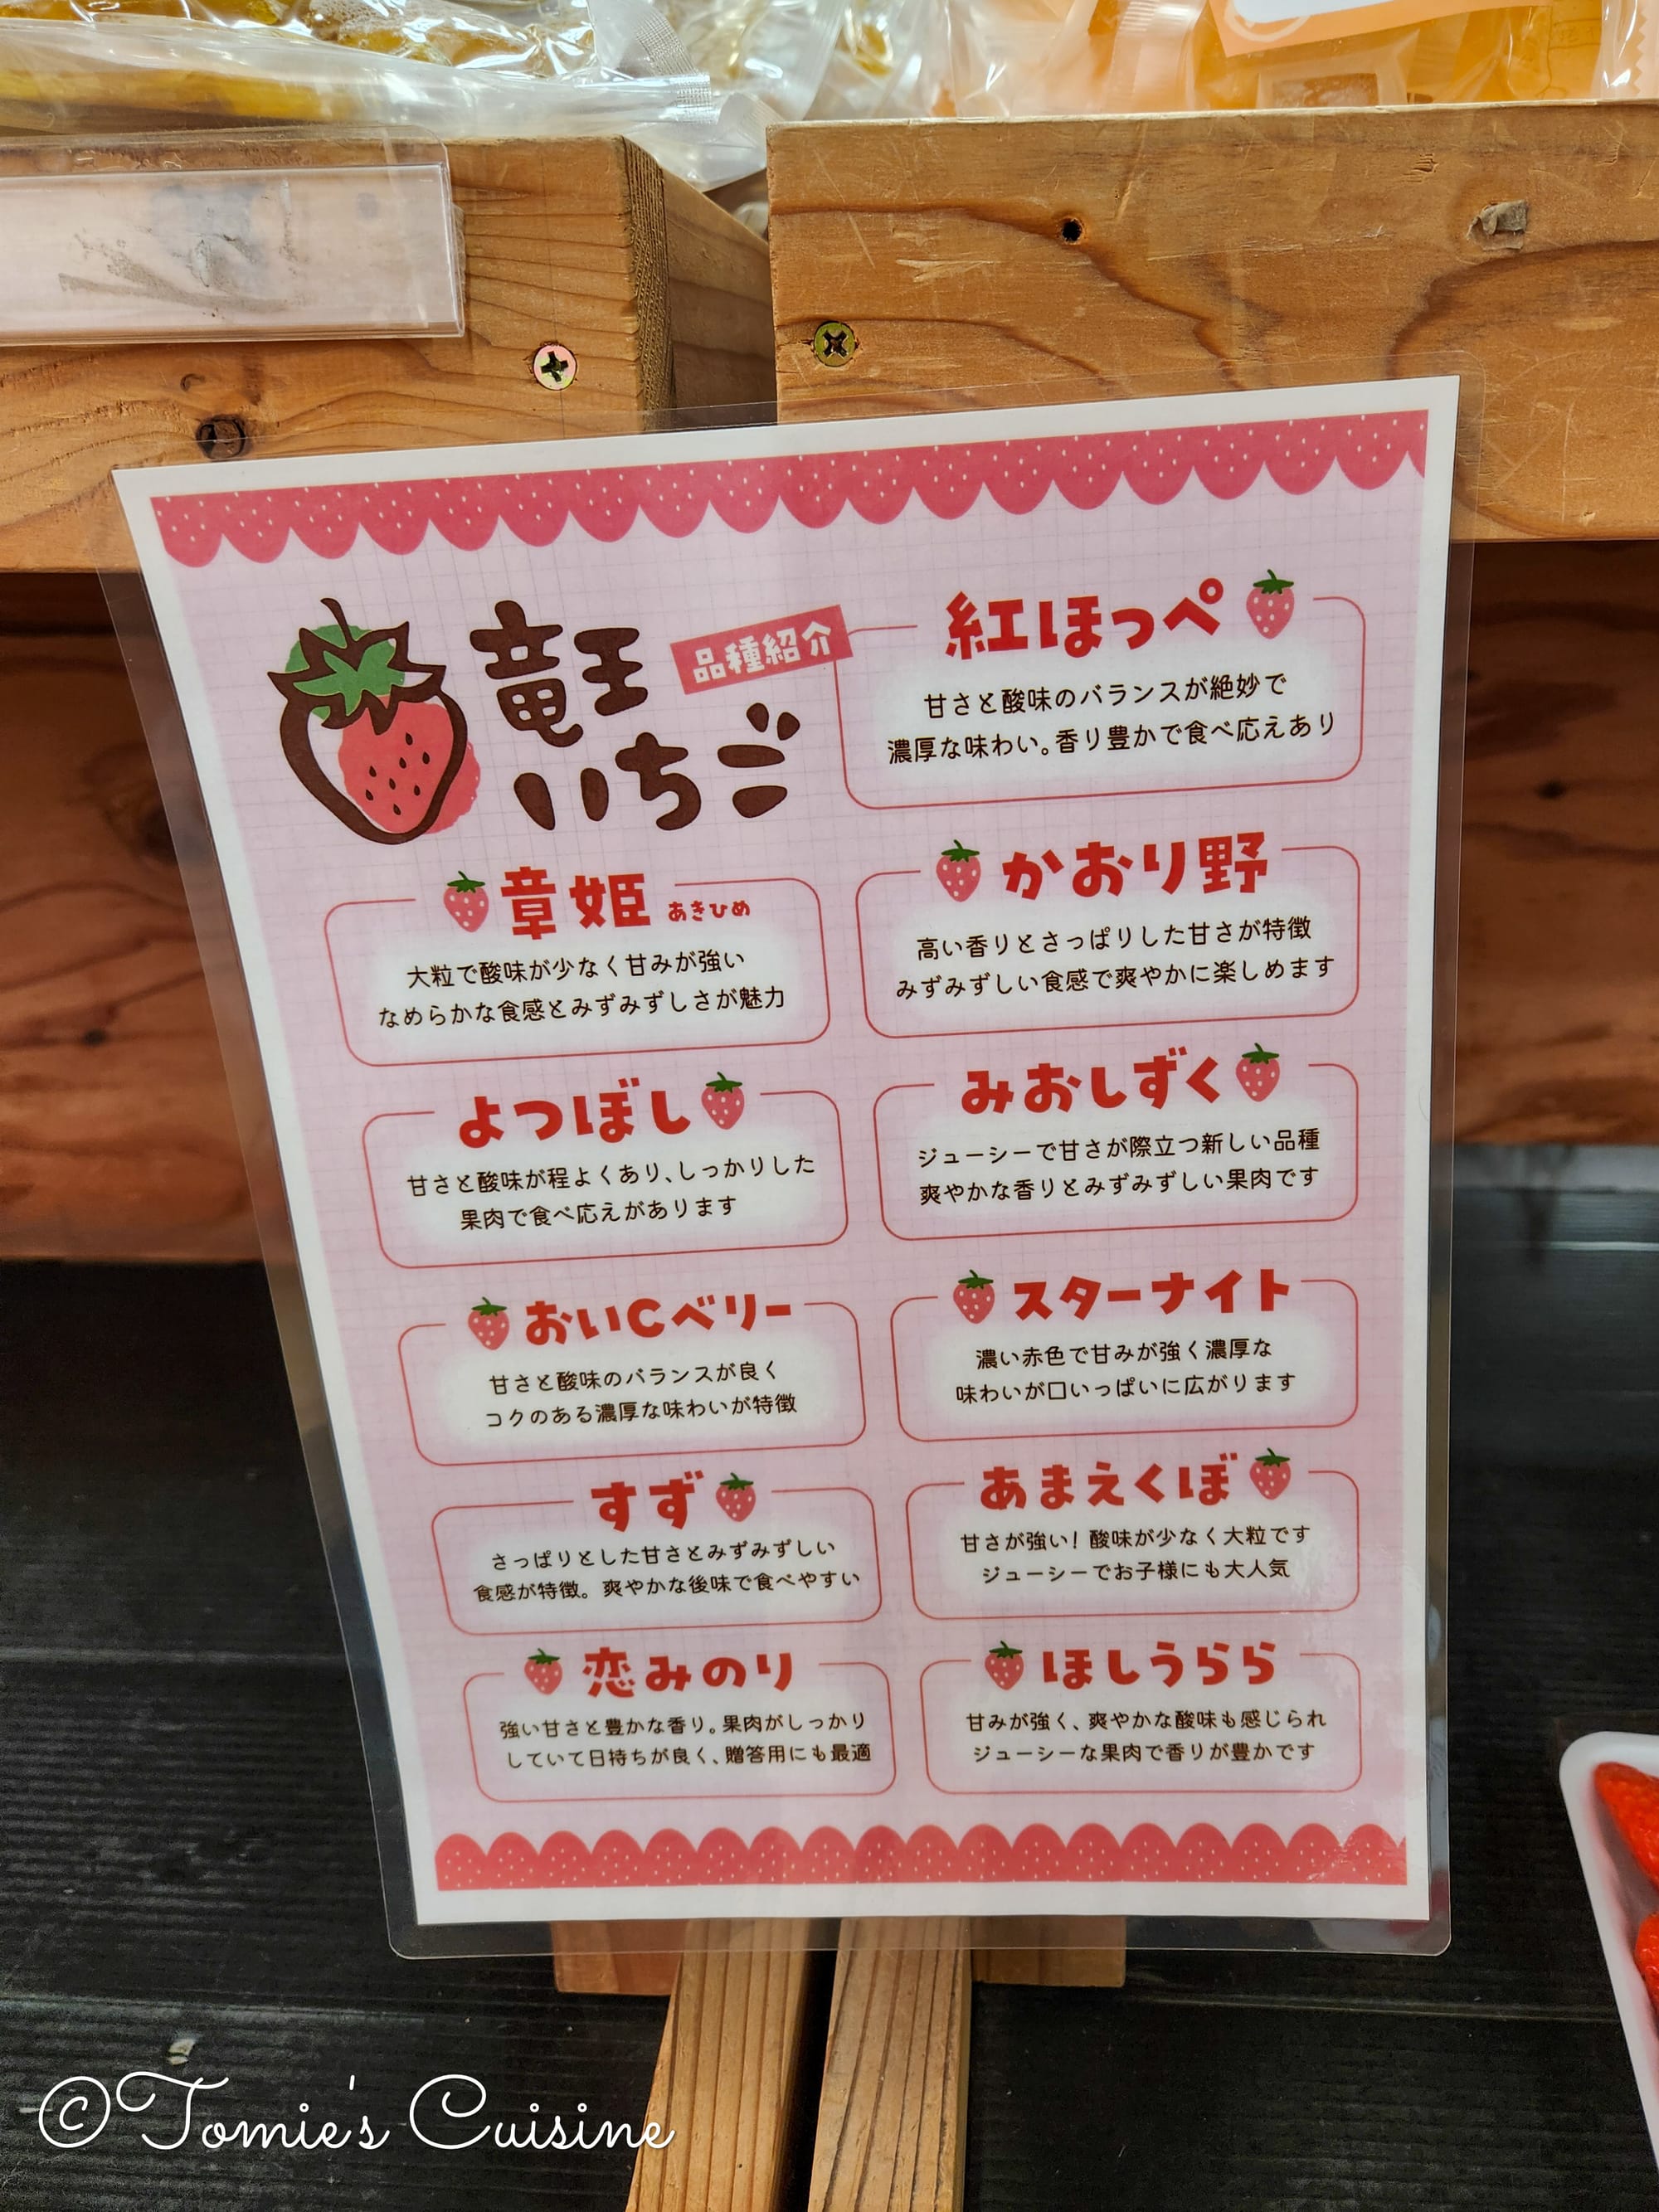 竜王
いちご
品種紹介
紅ほっぺ
甘さと酸味のバランスが絶妙で
濃厚な味わい。香り豊かで食べ応えあり
章姫 あきひめ
大粒で酸味が少なく甘みが強い
なめらかな食感とみずみずしさが魅力
かおり野
高い香りとさっぱりした甘さが特徴
みずみずしい食感で爽やかに楽しめます
よつぼし
甘さと酸味が程よくあり、しっかりした
果肉で食べ応えがあります
みおしずく
ジューシーで甘さが際立つ新しい品種
爽やかな香りとみずみずしい果肉です
おいCベリー
甘さと酸味のバランスが良く
コクのある濃厚な味わいが特徴
スターナイト
濃い赤色で甘みが強く濃厚な
味わいが口いっぱいに広がります
すず
さっぱりとした甘さとみずみずしい
食感が特徴。爽やかな後味で食べやすい
あまえくぼ
甘さが強い！酸味が少なく大粒です
ジューシーでお子様にも大人気
恋みのり
強い甘さと豊かな香り。果肉がしっかり
していて日持ちが良く、贈答用にも最適
ほしうらら
甘みが強く、爽やかな酸味も感じられ
ジューシーな果肉で香りが豊かです
©Tomie's Cuisine